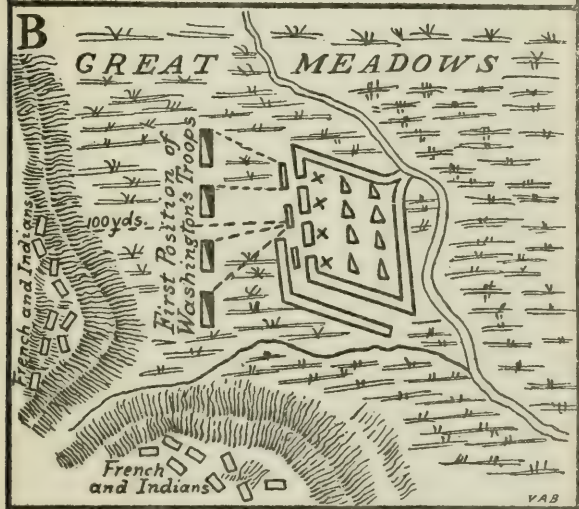 B
GREAT MEADOWS
First Position of
Washington's Troops
100 yds.
French and Indians
French
and Indians
VAB